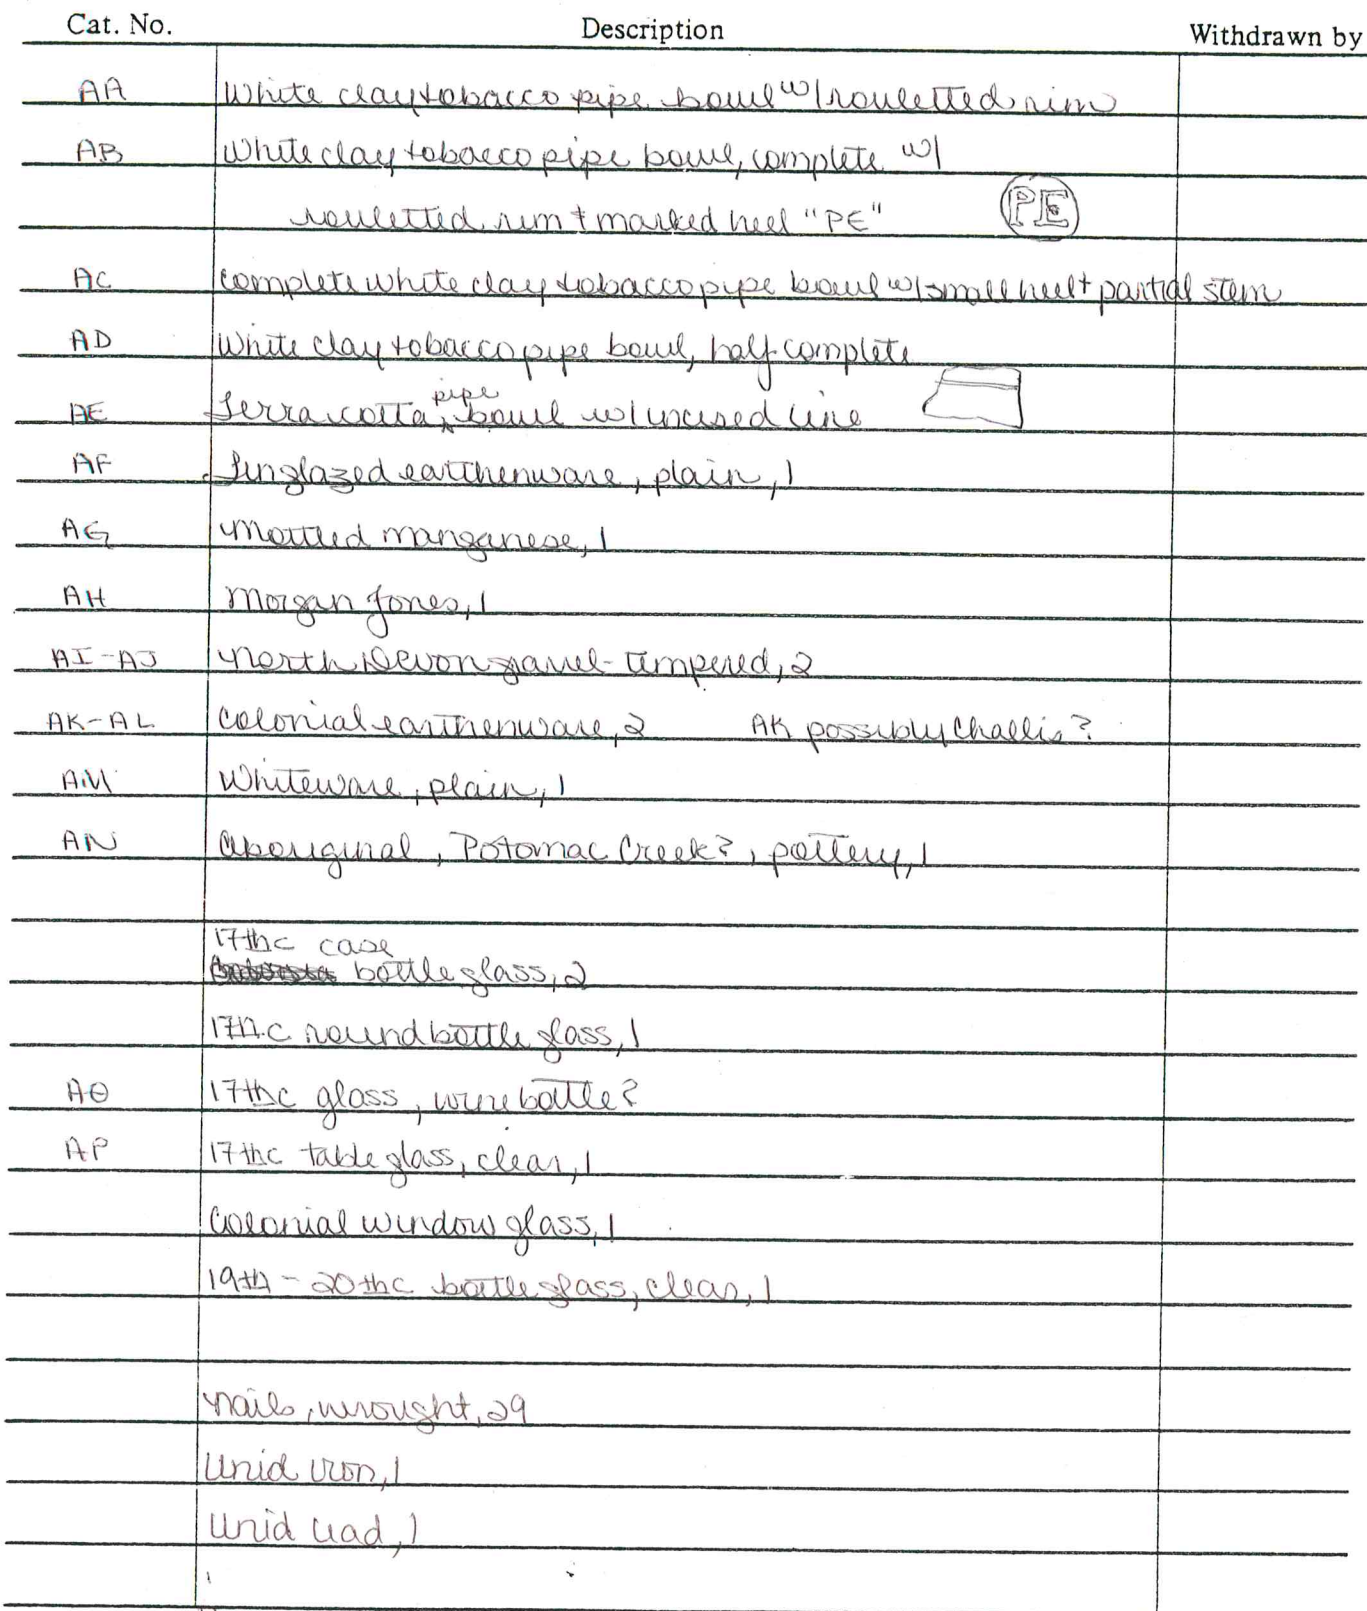 Cat. No. Description Withdrawn by
AA White clay tobacco pipe bowl w/rouletted rim
AB White clay tobacco pipe bowl, complete w/
rouletted rim + marked heel "PE" PE
AC complete white clay tobacco pipe bowl w/small heel + partial stem
AD White clay tobacco pipe bowl, half complete
AE Terra cotta pipe bowl w/incised line
AF unglazed earthenware, plain, 1
AG Mottled manganese, 1
AH Morgan Jones, 1
AI-AJ North Devon gravel-tempered, 2
AK-AL Colonial earthenware, 2 AK possibly Challis?
AM Whiteware, plain, 1
AN Aboriginal, Potomac Creek?, pottery, 1
17thc case
bottle glass, 2
17thc round bottle glass, 1
AO 17thc glass, wine bottle?
AP 17thc table glass, clear, 1
Colonial window glass, 1
19th-20thc bottle glass, clear, 1
nails, wrought, 29
Unid iron, 1
Unid lead, 1